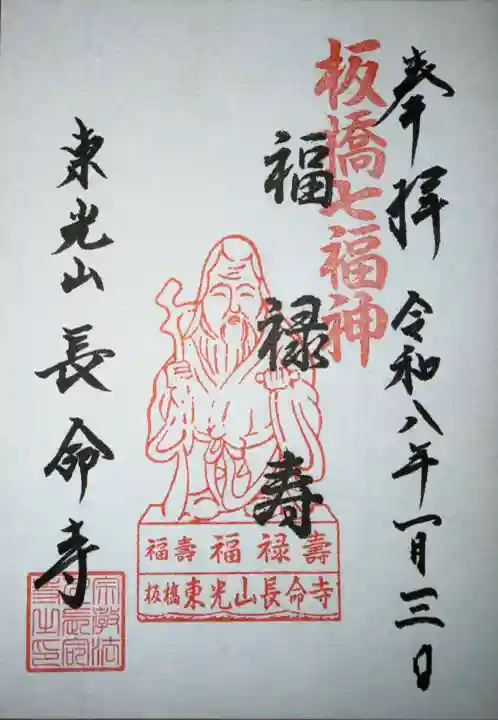 奉拝 令和八年一月三日
板橋七福神
福禄寿
福壽 福禄壽
板橋 東光山長命寺
東光山 長命寺